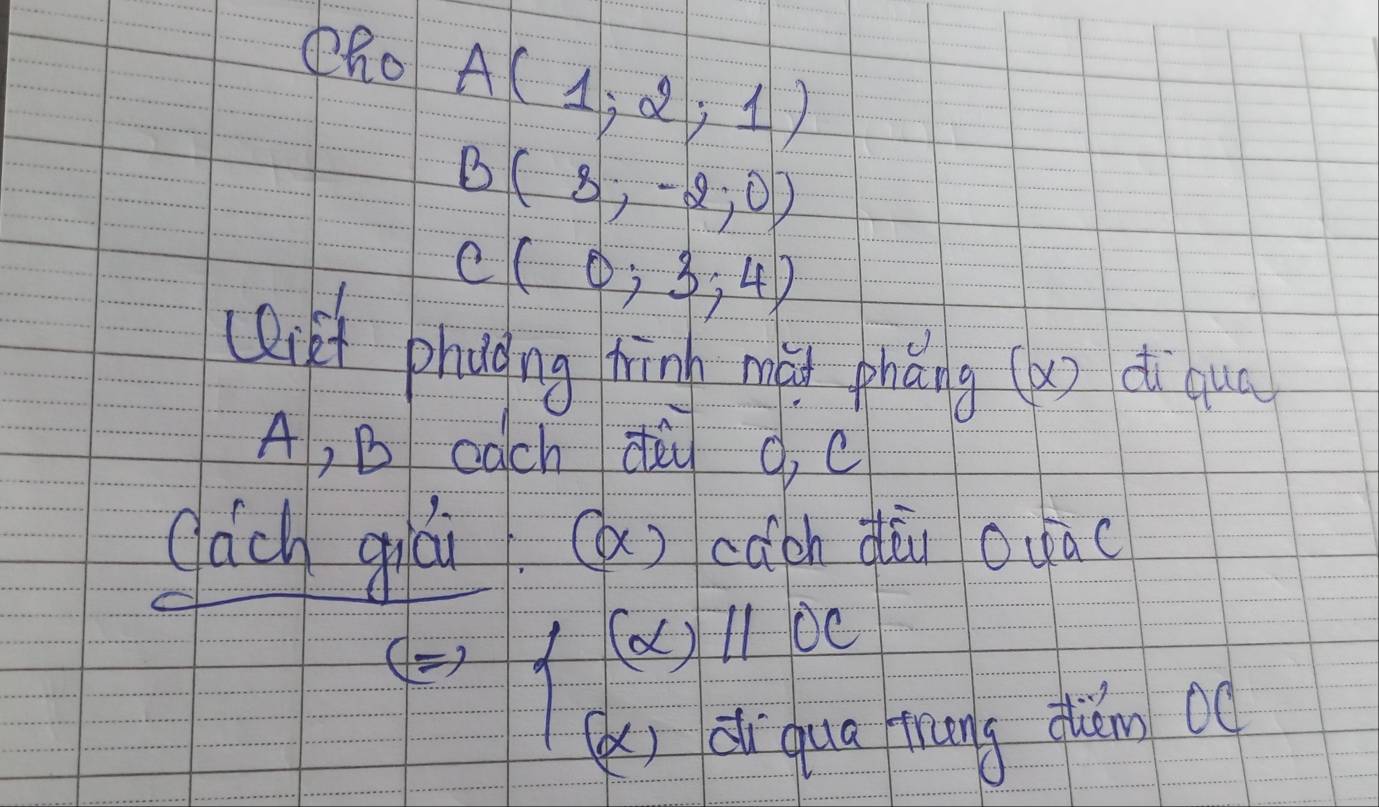 Cho A( 1; 2; 1)
B( 3; -2; 0)
C( 0; 3; 4)
Viết phương trình mặt phẳng (α) đi qua
A, B cách đều O, C
Cách giải : (α) cách đều O và C
(=) { (α) // OC
(α) đi qua trung điểm OC